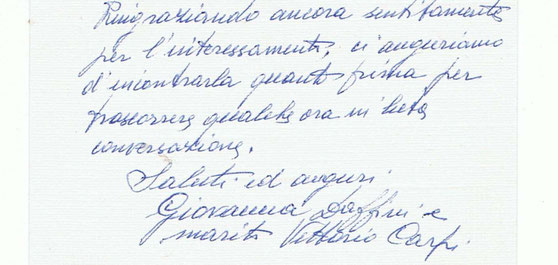 Ringraziando ancora sentitamente
per l'interessamento, ci auguriamo
d'incontrarla quanto prima per
trascorrere qualche ora in lieta
conversazione.
Saluti ed auguri
Giovanna Daffini e
marito Vittorio Carpi